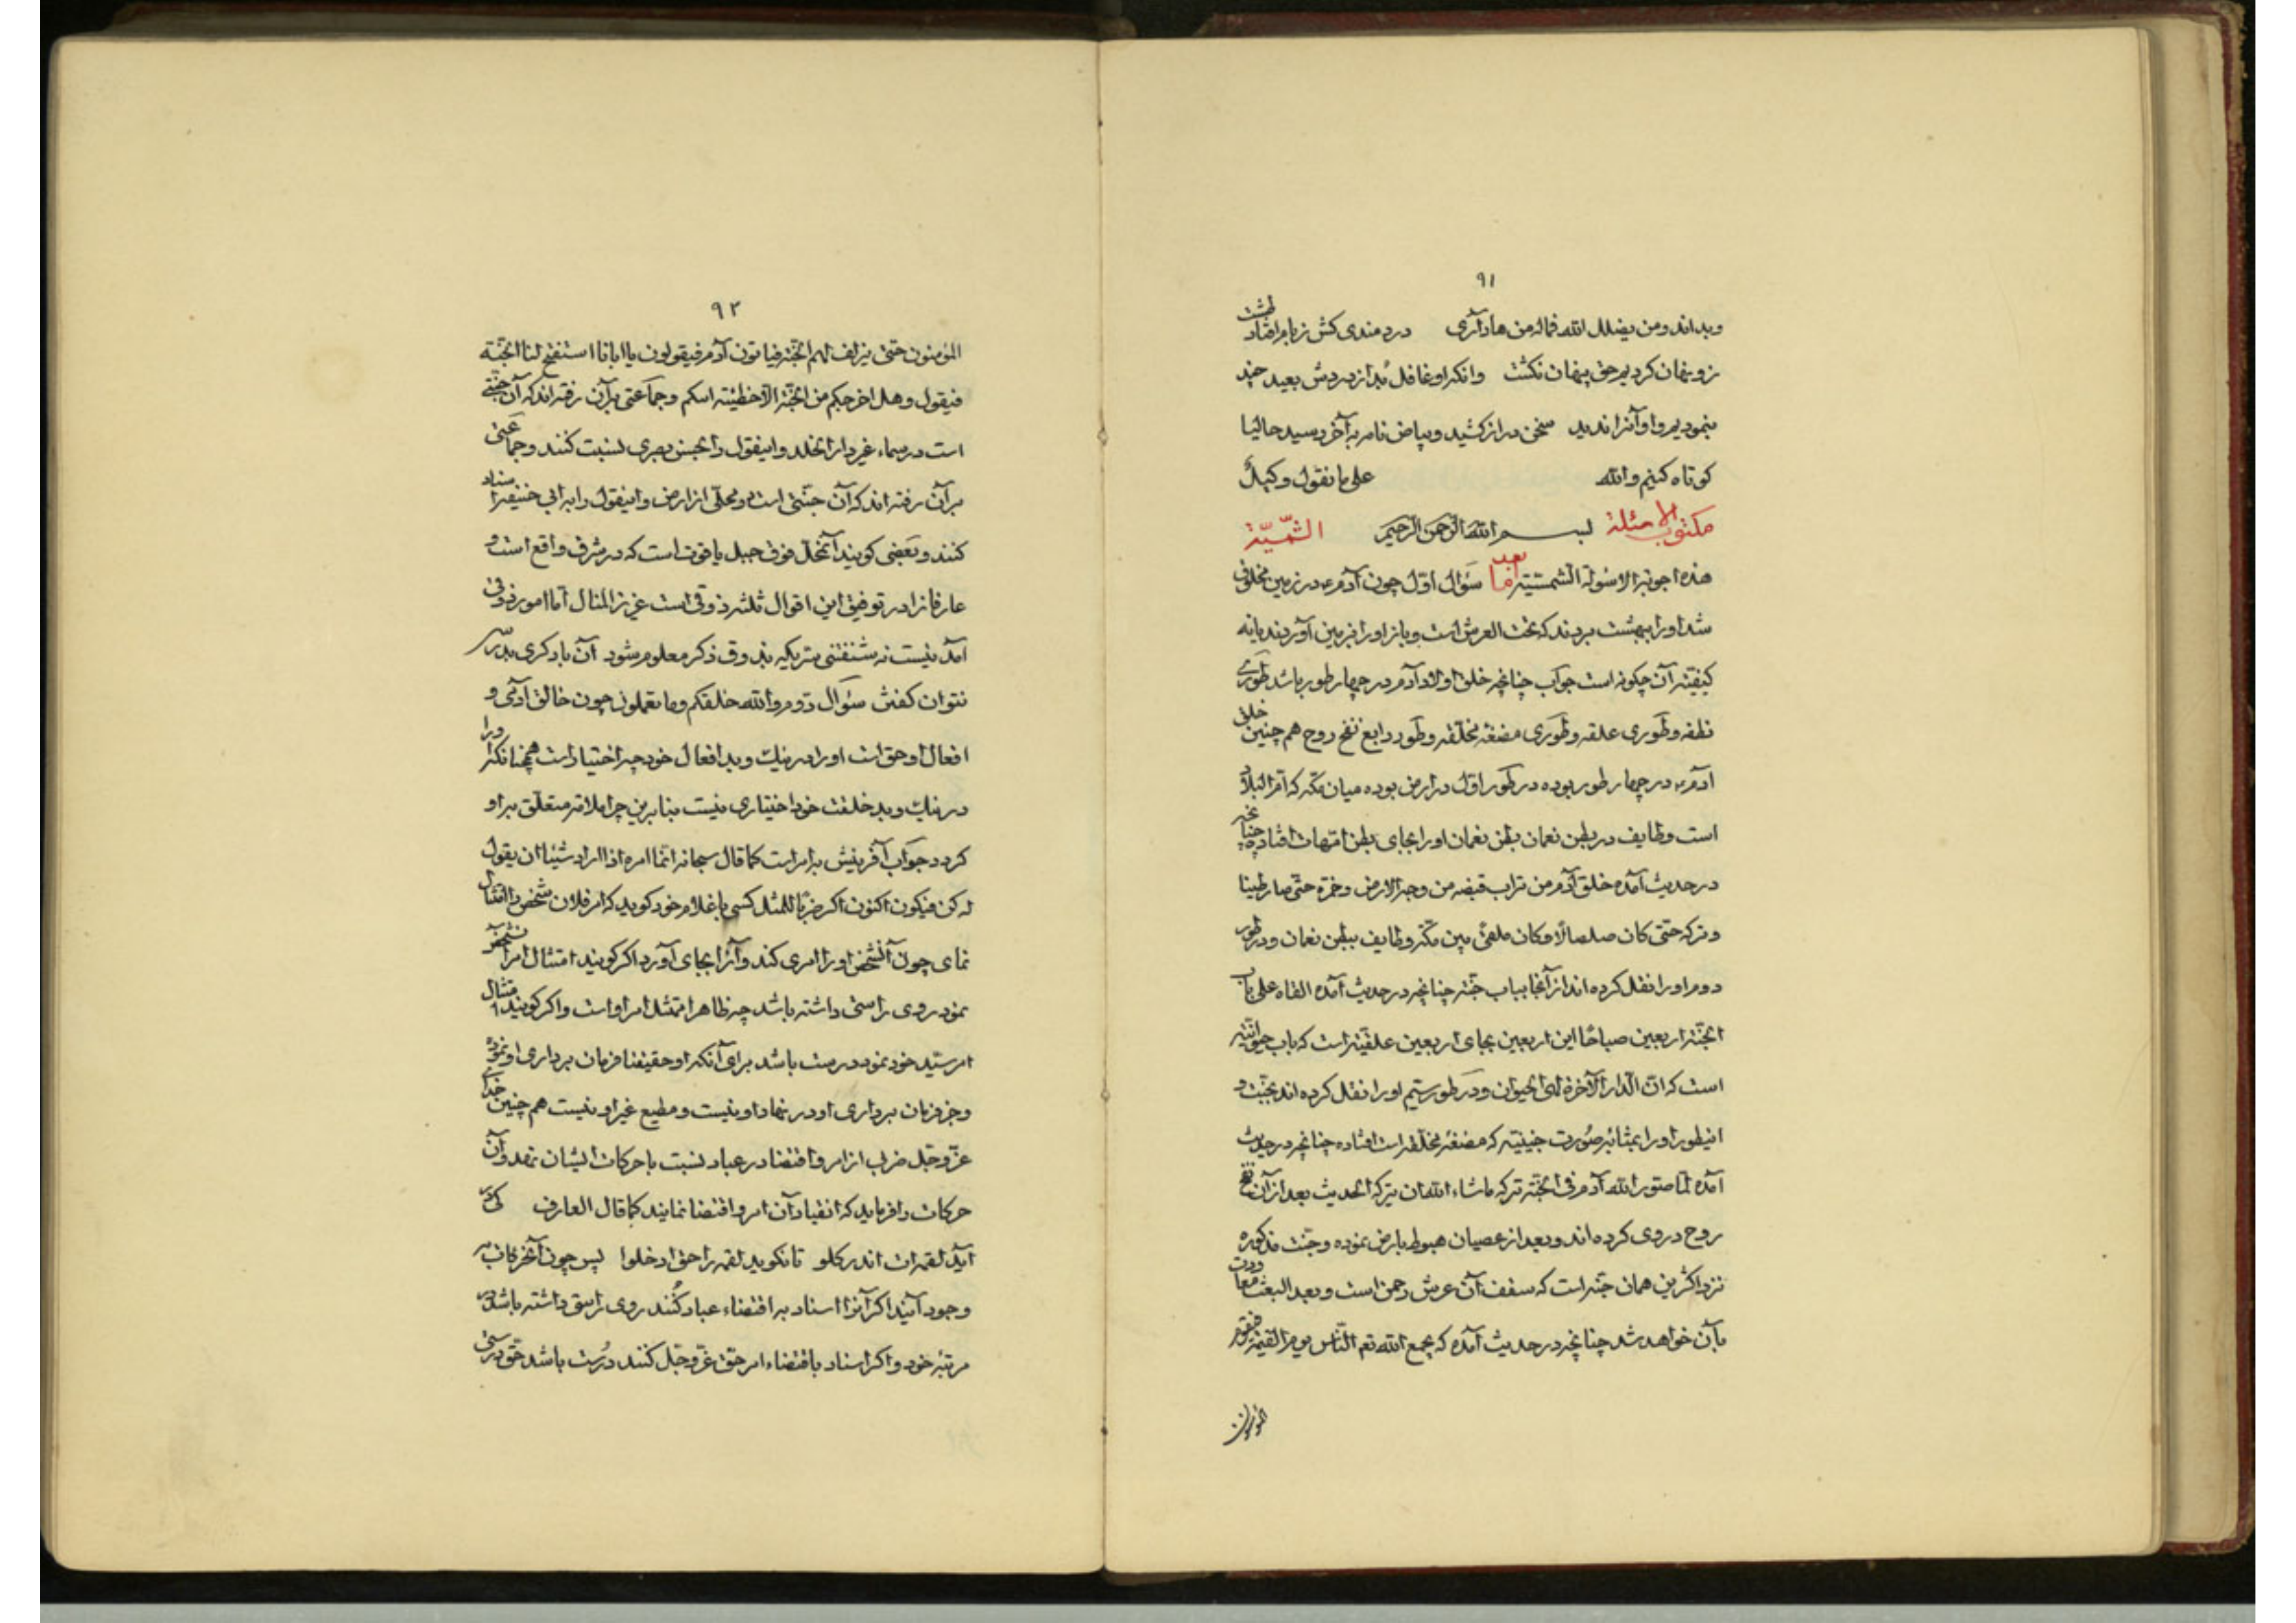 ۹۱
وبداند ومن یضلل الله فماله من هاد آری درد مندی کش زبام افتاد طشت
زو نهان کردیم حق پنهان نکشت وانکه او غافل بد از دردش بعید چند
بنمودیم واو آنرا ندید سخن دراز کشید وبیاض نامه بآخر رسید حالیا
کوتاه کنیم والله علی ما نقول وکیل
مکتوب الاسئلة بسم الله الرحمن الرحیم الشمسیّة
هذه اجوبة الاسئولة الشمسیّة اما بعد سؤال اوّل چون آدم ع در زمین مخلوق
شد او را ببهشت بردند که تحت العرش است وباز او را بزمین آوردند یا نه
کیفیّة آن چکونه است جواب چنانچه خلق اولاد آدم در چهار طور باشد طوری
نطفه وطوری علقه وطوری مضغه مخلّقه وطور رابع نفخ روح هم چنین خلق
آدم ع در چهار طور بوده در طور اوّل در ارض بوده میان مکّه که امّ البلاد
است وطایف در بطن نعمان بطن نعمان او را بجای بطن امّهات افتاده چنانچه
در حدیث آمده خلق آدم من تراب قبضه من وجه الارض وخمّره حتّی صار طینا
وترکه حتّی کان صلصالا وکان ملقیً بین مکّه وطایف ببطن نعمان ودر طور
دوم او را نقل کرده اند از آنجا بباب جنّه چنانچه در حدیث آمده القاه علی باب
الجنّة اربعین صباحًا این اربعین بجای اربعین علقیّه است که باب حیوانیّه
است که انّ الدار الآخرة لهی الحیوان ودر طور سیّم او را نقل کرده اند بجنّت و
اینطور او را بمثابهٔ صورت جنینیّه که مضغهٔ مخلّقه است افتاده چنانچه در حدیث
آمده لمّا صوّر الله آدم فی الجنّة ترکه ما شاء الله ان یترکه الحدیث بعد از آن نفخ
روح در وی کرده اند وبعد از عصیان هبوط بارض نموده وجنّت مذکوره
نزد اکثرین همان جنّه است که سقف آن عرش رحمن است وبعد البعث معاودت
بآن خواهد شد چنانچه در حدیث آمده که یجمع الله تع النّاس یوم القیمة فیقوم
المؤمنون
۹۲
المؤمنون حتّی یزلف لهم الجنّة فیاتون آدم فیقولون یا ابانا استفتح لنا الجنّة
فیقول وهل اخرجکم من الجنّة الّا خطیئة ابیکم وجماعتی برآن رفته اند که آن جنّتی
است در سماء غیر دار الخلد واینقول را بحسن بصری نسبت کنند وجماعتی
برآن رفته اند که آن جنّتی است در محلّی از ارض واینقول را به ابی حنیفه اسناد
کنند وبعضی کویند آنمحلّ فوق جبل یاقوت است که در مشرق واقع است و
عارفانرا در توفیق این اقوال ثلثه ذوقی است عزیز المنال امّا امور ذوقی
آمدنیست نه شنفتنی بتریکیه بذوق ذکر معلوم شود آن باد کری بدرس
نتوان کفتن سؤال دوم والله خلقکم وما تعملون چون خالق آدمی و
افعال او حق است او را در نیک وبد افعال خود چه اختیار است همچنانکه او را
در نیک وبد خلقت خود اختیاری نیست بنابرین چرا ملامت متعلّق براو
کردد جواب آفرینش بامر است کما قال سبحانه انّما امره اذا اراد شیئا ان یقول
له کن فیکون اکنون اکر ضربًا للمثل کسی با غلام خود کوید که امر فلان شخص را امتثال
نمای چون آنشخص او را امری کند وآنرا بجای آورد اکر کویند امتثال امر آنشخص
نمود روی راستی داشته باشد چه ظاهرا ممتثل امر اوست واکر کویند امتثال
امر سیّد خود نمود درست باشد برای آنکه او حقیقتا فرمان برداری او نموده
وجز فرمان برداری او در نهاد او نیست ومطیع غیر او نیست هم چنین خدای
عزّ وجلّ ضرب از امر واقتضا در عباد نسبت با حرکات ایشان نهد وآن
حرکات را فرماید که انقیاد آن امر واقتضا نمایند کما قال العارف کی
آید لقمه ات اندر کلو تا نکوید لقمه را حق ادخلوا پس چون آنحرکات در
وجود آیند اکر آنرا اسناد به اقتضاء عباد کنند روی راستی داشته باشد در
مرتبهٔ خود واکر اسناد باقتضاء امر حقّ عزّ وجلّ کنند درست باشد حقّ درستی